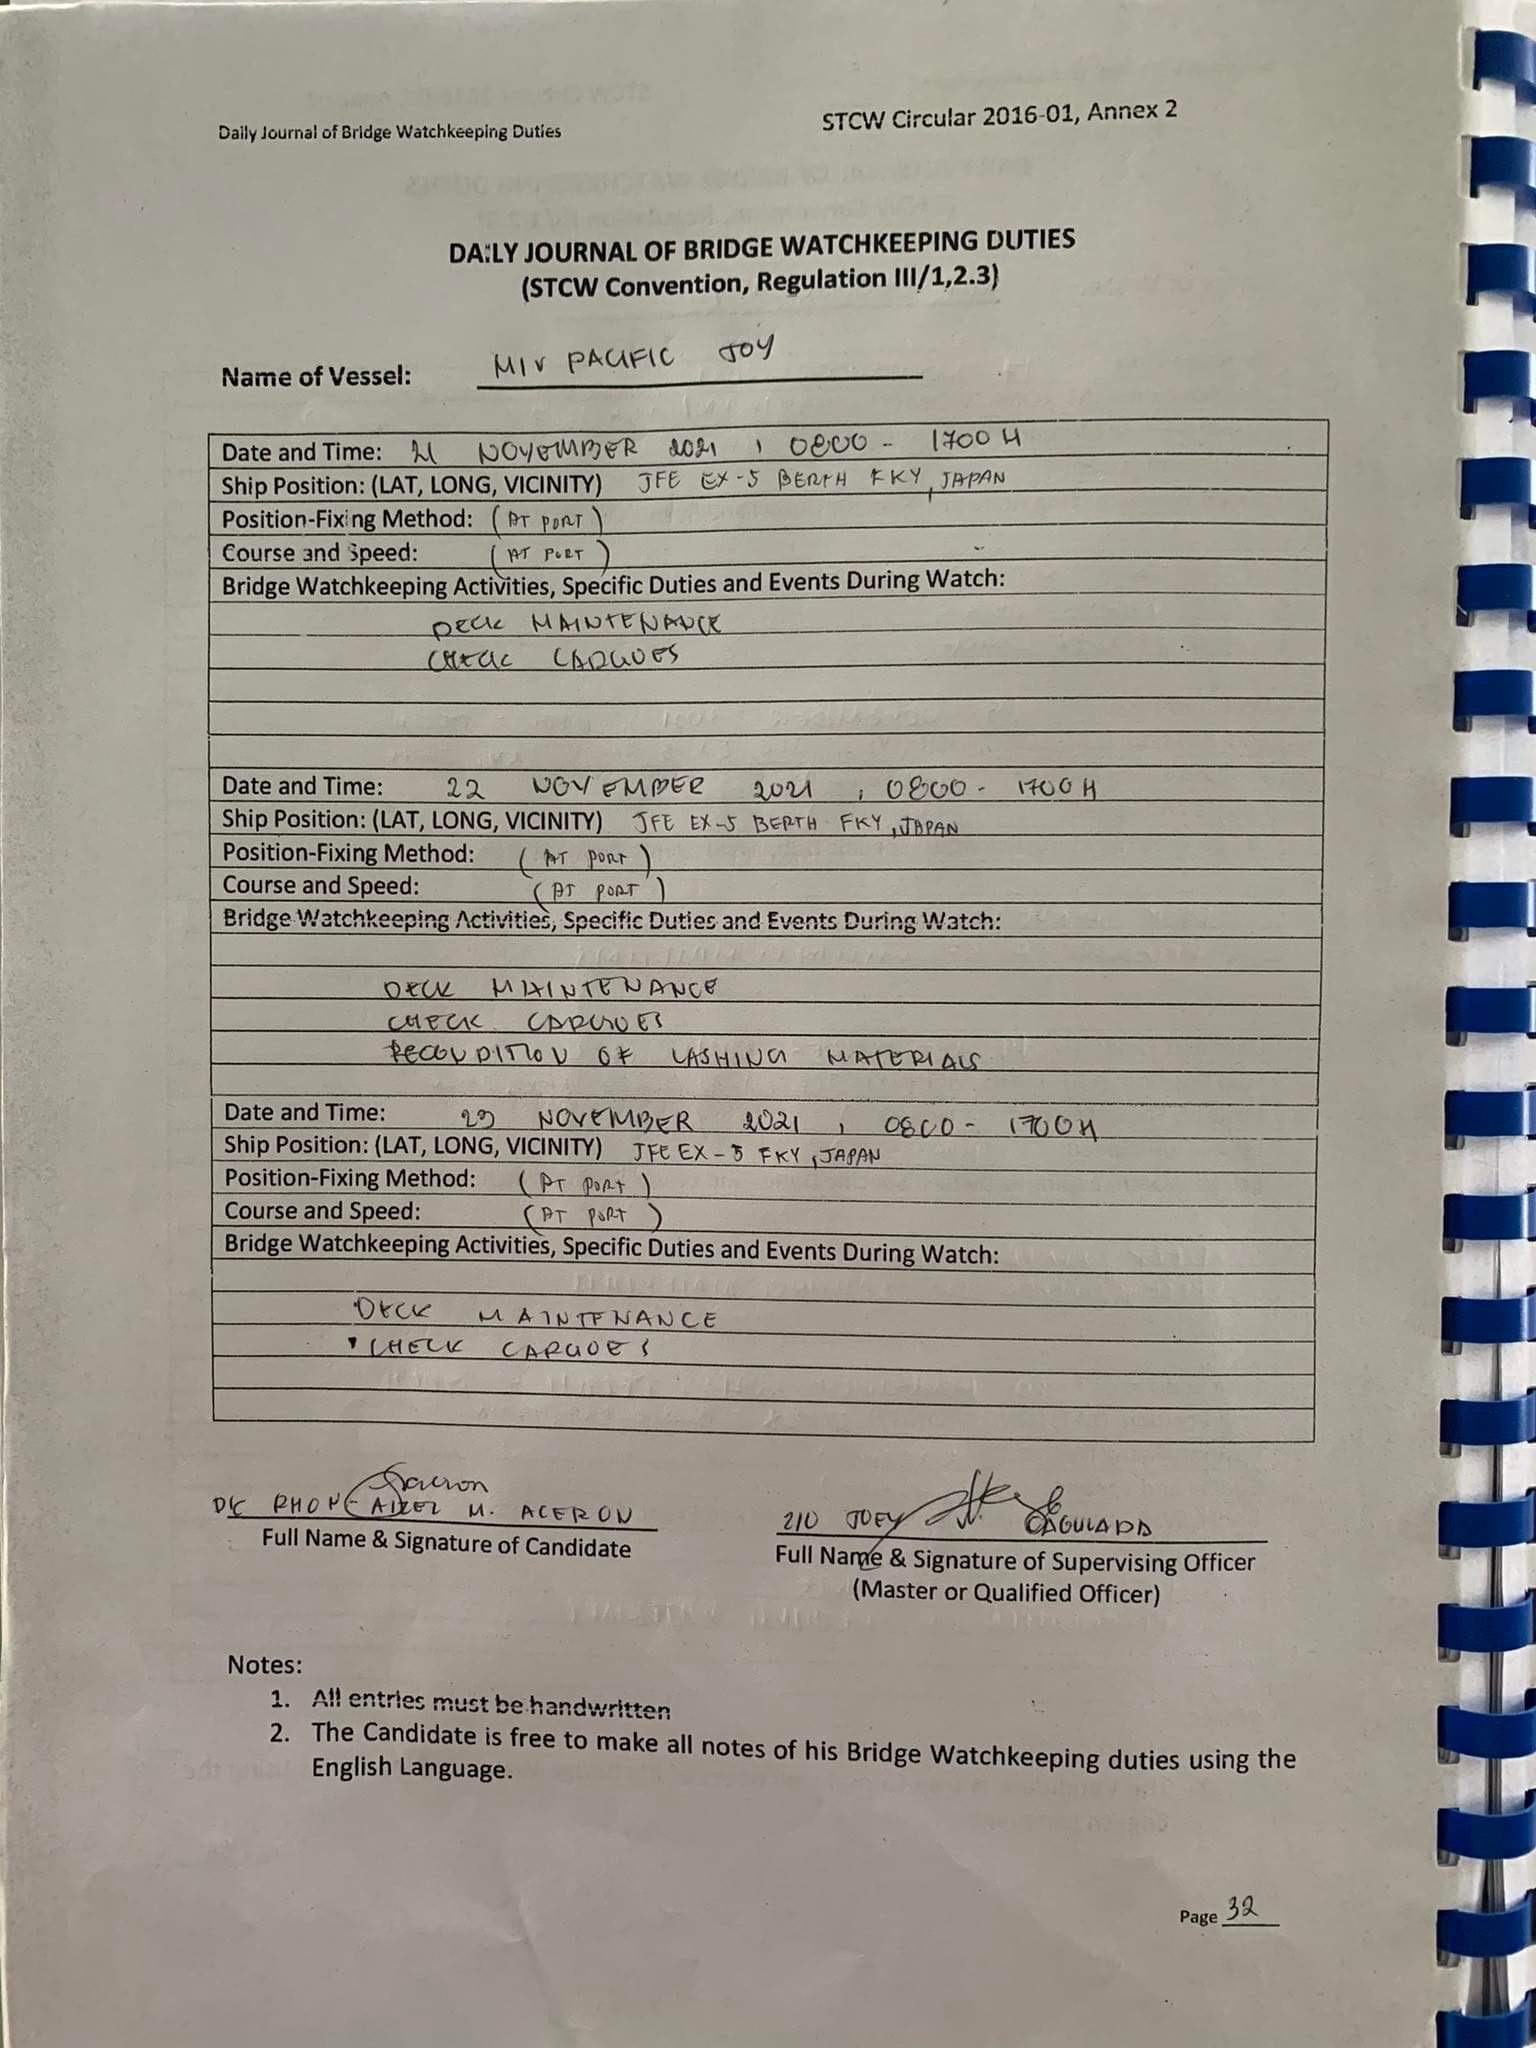 Daily Journal of Bridge Watchkeeping Duties
STCW Circular 2016-01, Annex 2
DAILY JOURNAL OF BRIDGE WATCHKEEPING DUTIES
(STCW Convention, Regulation III/1,2.3)
Name of Vessel: M/V PACIFIC JOY
Date and Time: 21 NOVEMBER 2021, 0800 - 1700H
Ship Position: (LAT, LONG, VICINITY) JFE EX-5 BERTH FKY, JAPAN
Position-Fixing Method: (AT PORT)
Course and Speed: (AT PORT)
Bridge Watchkeeping Activities, Specific Duties and Events During Watch:
DECK MAINTENANCE
CHECK CARGOES
Date and Time: 22 NOVEMBER 2021, 0800 - 1700H
Ship Position: (LAT, LONG, VICINITY) JFE EX-5 BERTH FKY, JAPAN
Position-Fixing Method: (AT PORT)
Course and Speed: (AT PORT)
Bridge Watchkeeping Activities, Specific Duties and Events During Watch:
DECK MAINTENANCE
CHECK CARGOES
RECONDITION OF LASHING MATERIALS
Date and Time: 23 NOVEMBER 2021, 0800 - 1700H
Ship Position: (LAT, LONG, VICINITY) JFE EX-5 FKY, JAPAN
Position-Fixing Method: (AT PORT)
Course and Speed: (AT PORT)
Bridge Watchkeeping Activities, Specific Duties and Events During Watch:
DECK MAINTENANCE
CHECK CARGOES
D/C RHON AIZEL M. ACERON
Full Name & Signature of Candidate
2/O JOEY CAGULADA
Full Name & Signature of Supervising Officer
(Master or Qualified Officer)
Notes:
1. All entries must be handwritten
2. The Candidate is free to make all notes of his Bridge Watchkeeping duties using the
English Language.
Page 32